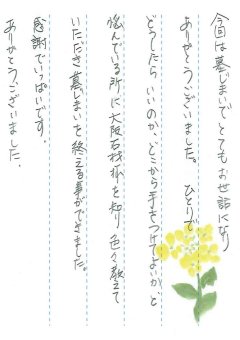 今回は墓じまいでとてもお世話になり
ありがとうございました。 ひとりで
どうしたら いいのか、どこから手をつけてよいか、と
悩んでいる所に大阪石材拡を知り 色々教えて
いただき 墓じまいを 終える事ができました。
感謝でいっぱいです。
ありがとうございました。